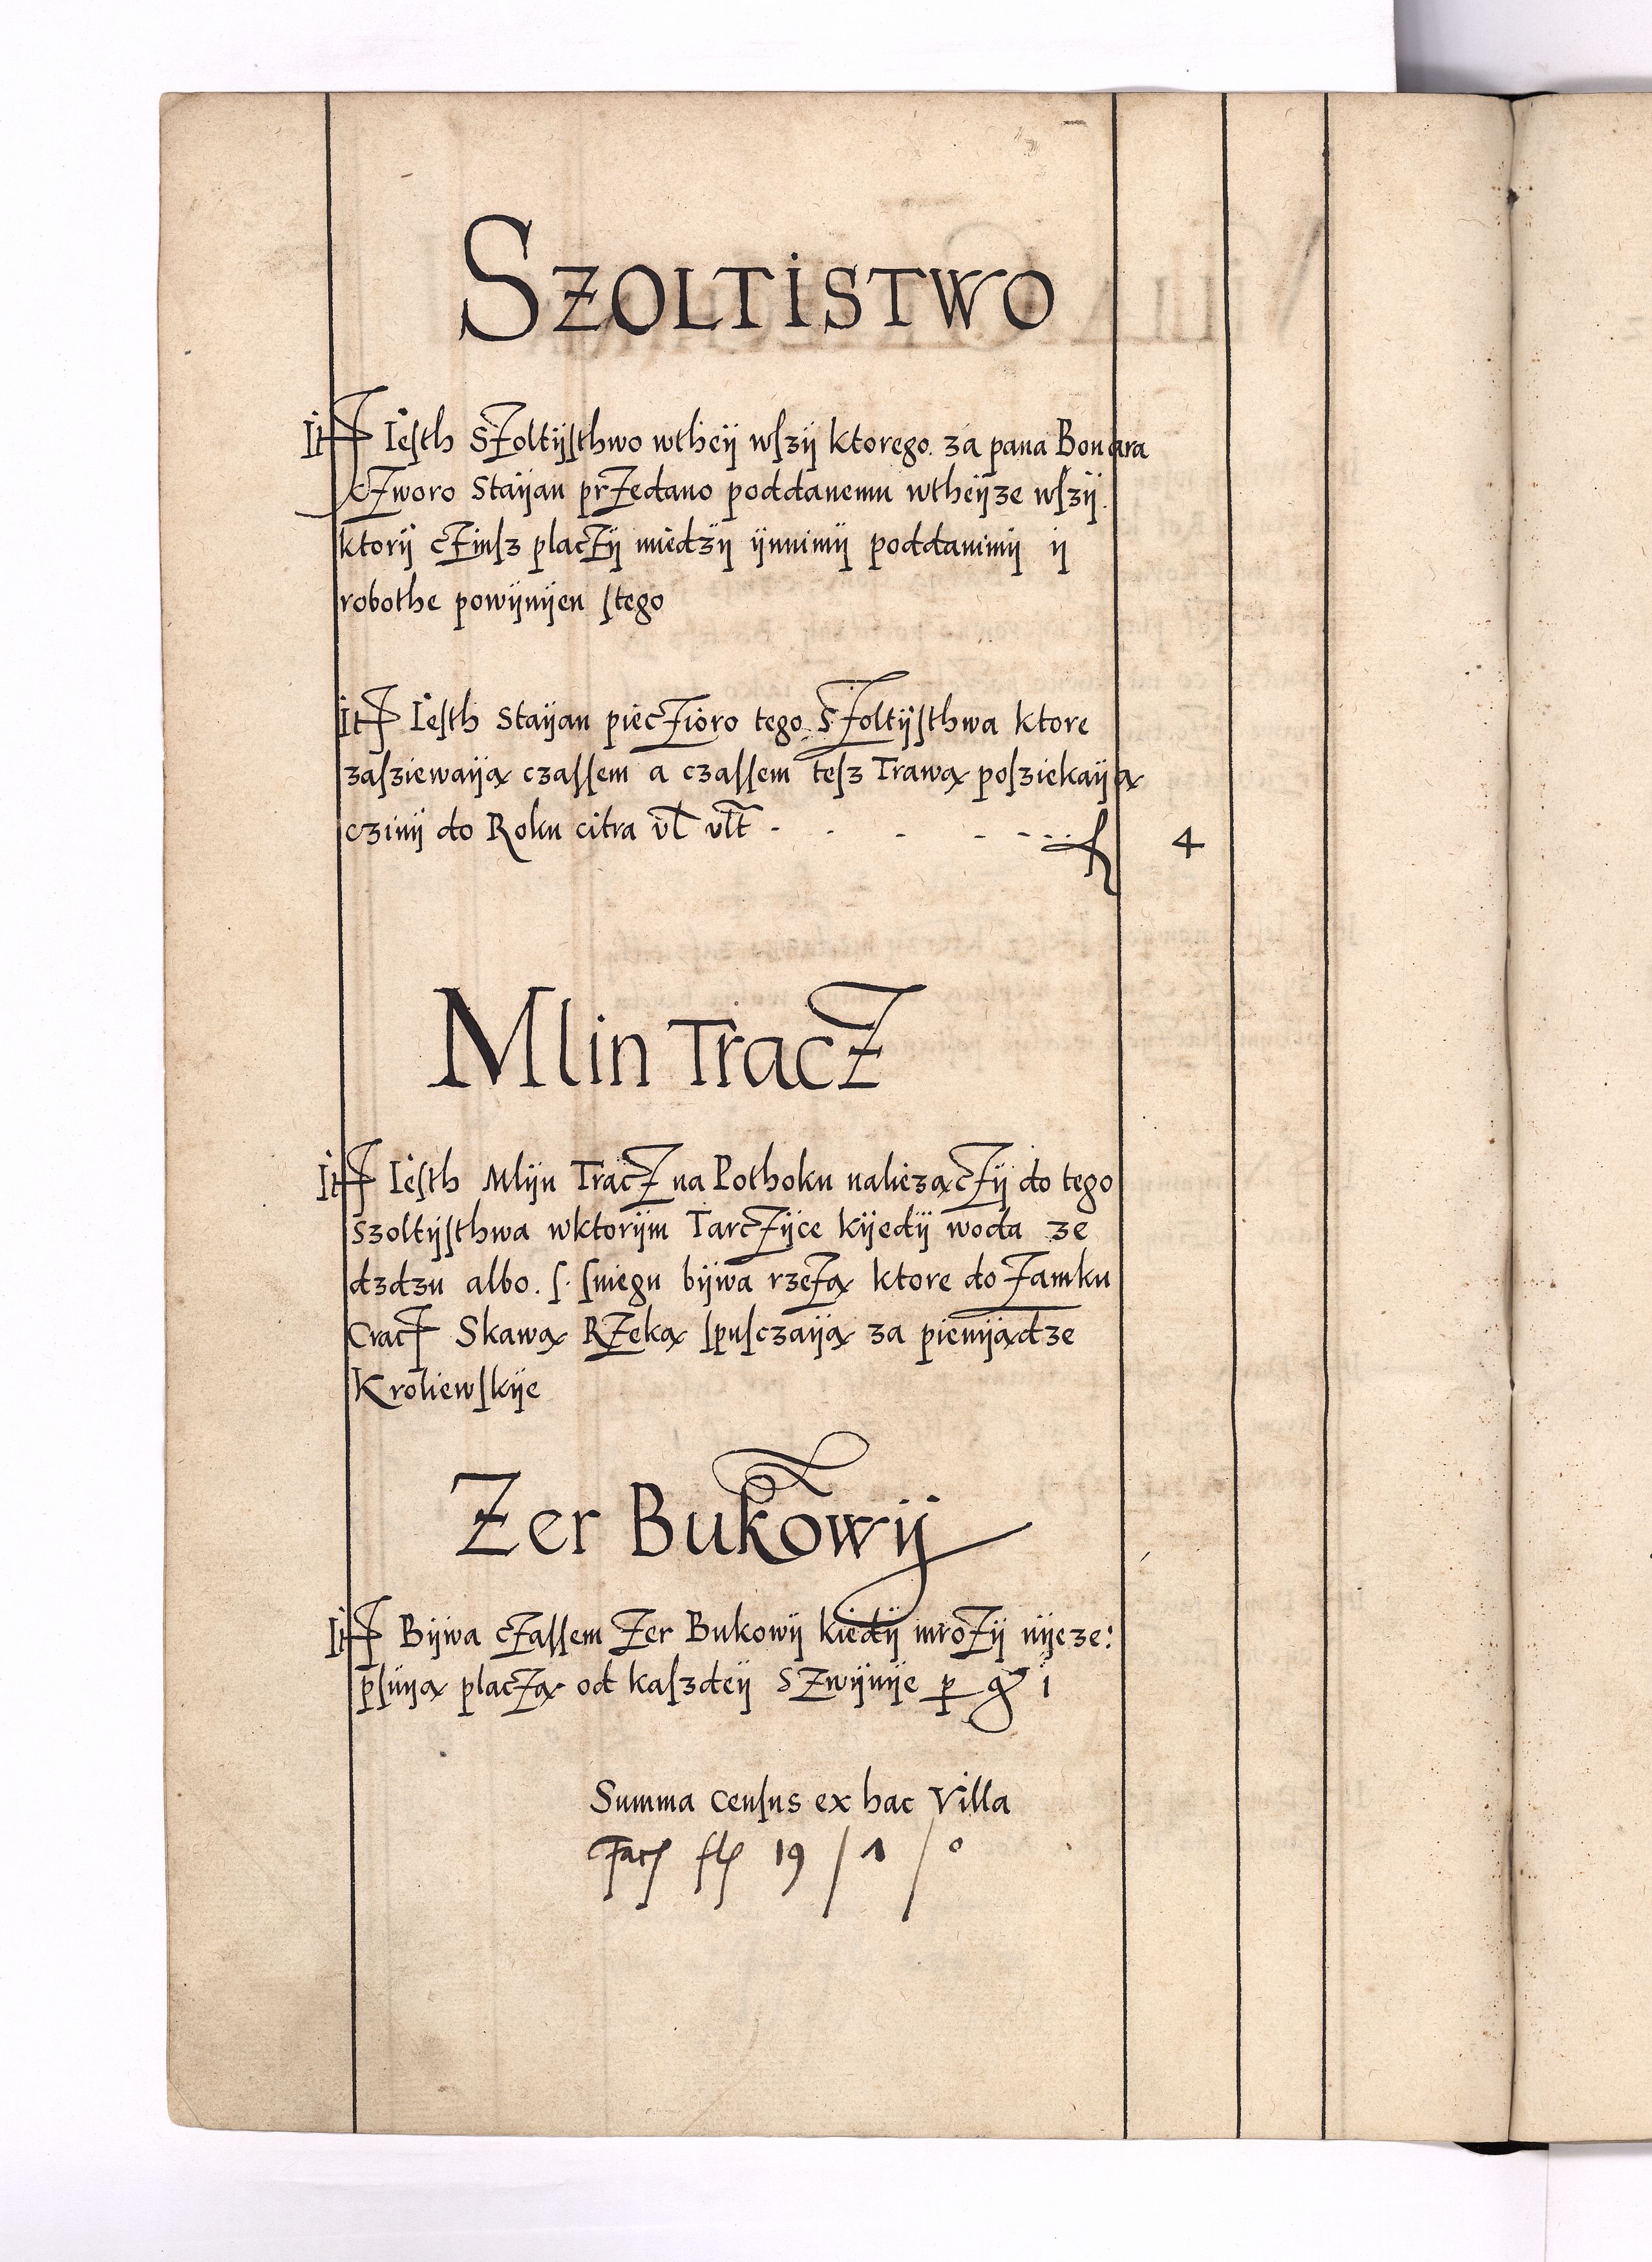 Szoltistwo
Itꝭ Iesth Szoltijsthwo wtheij wſzij ktorego za pana Bonara
cZworo Staijan prZedano poddanemu wtheijze wſzij.
ktorij cZinſz placZij miedzij ijnnimij poddanimij ij
robothe powijnijen ſtego
Itꝭ Iesth Staijan piecZioro tego SZoltijſthwa ktore
zaſziewaiją czaſſem a czaſſem teſz Trawą poſziekaiją
czinij do Roku citra vl vlt - - - - - f 4
Mlin Tracz
Itꝭ Iesth Mlijn TracZ na Pothoku nalieżącZij do tego
Szoltijſthwa wktorijm TarcZijce kijedij woda ze
dzdzu albo. ſ. ſniegu bijwa rzeZą ktore do Zamku
Cracꝭ Skawą RZeką ſpuſczaiją za pienijądze
Kroliewſkije
Zer Bukowij
Itꝭ Bijwa cZaſſem Zer Bukowij kiedij mroZij nijeze:
pſuiją placZą od kaſzdeij SZwijnije ꝑ gꝛ i
Summa cenſus ex hac Villa
Facꝭ flꝭ 19 / 1 / 0